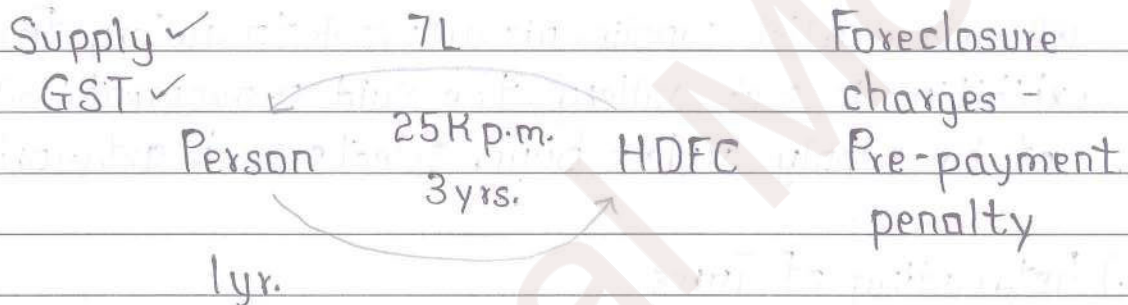 Supply ✓ 7L Foreclosure
GST ✓ charges -
25K p.m.
Person HDFC Pre-payment
3yrs. penalty
1yr.